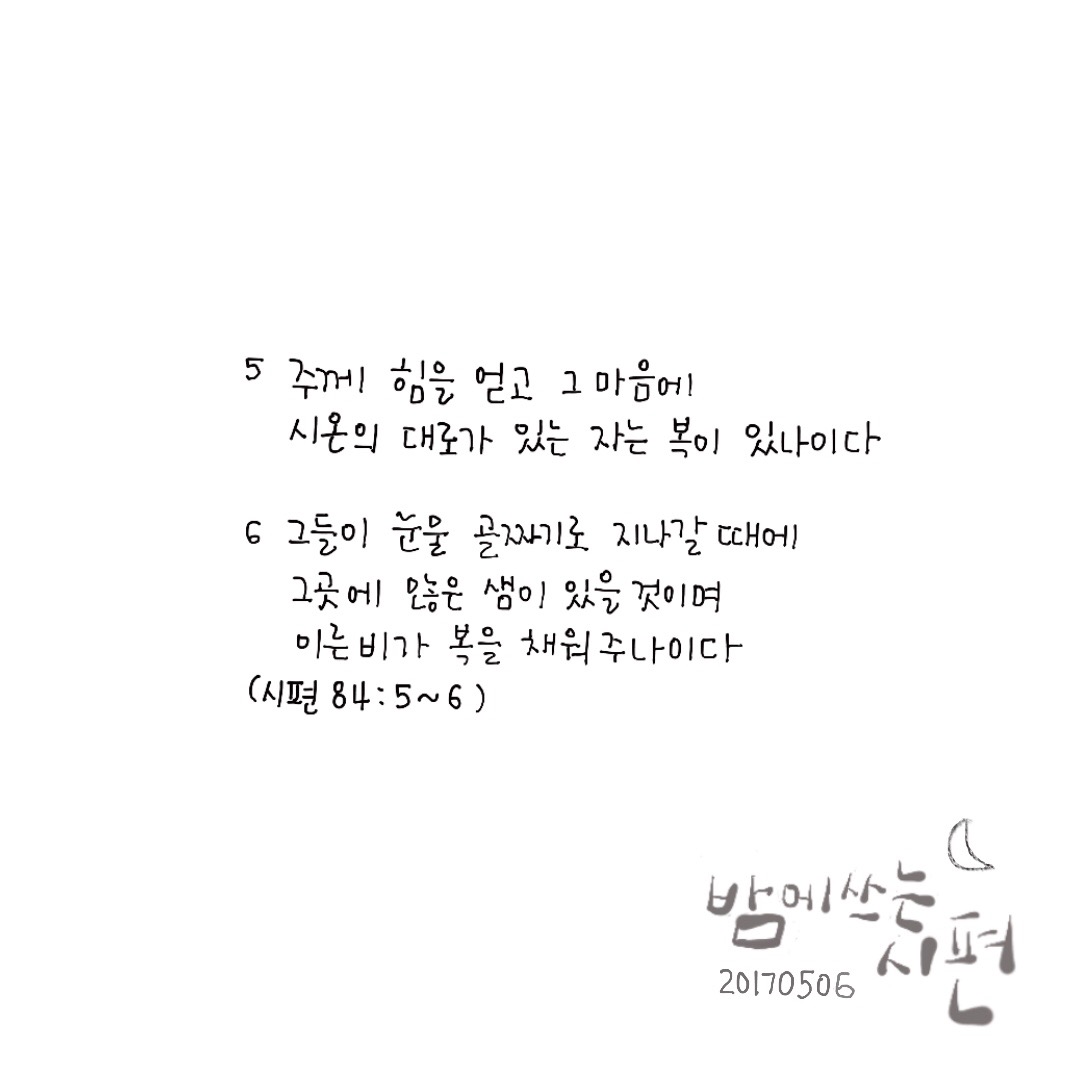 5 주께 힘을 얻고 그 마음에
시온의 대로가 있는 자는 복이 있나이다
6 그들이 눈물 골짜기로 지나갈 때에
그곳에 많은 샘이 있을 것이며
이른 비가 복을 채워 주나이다
(시편 84:5~6)
밤에 쓰는
시편
20170506